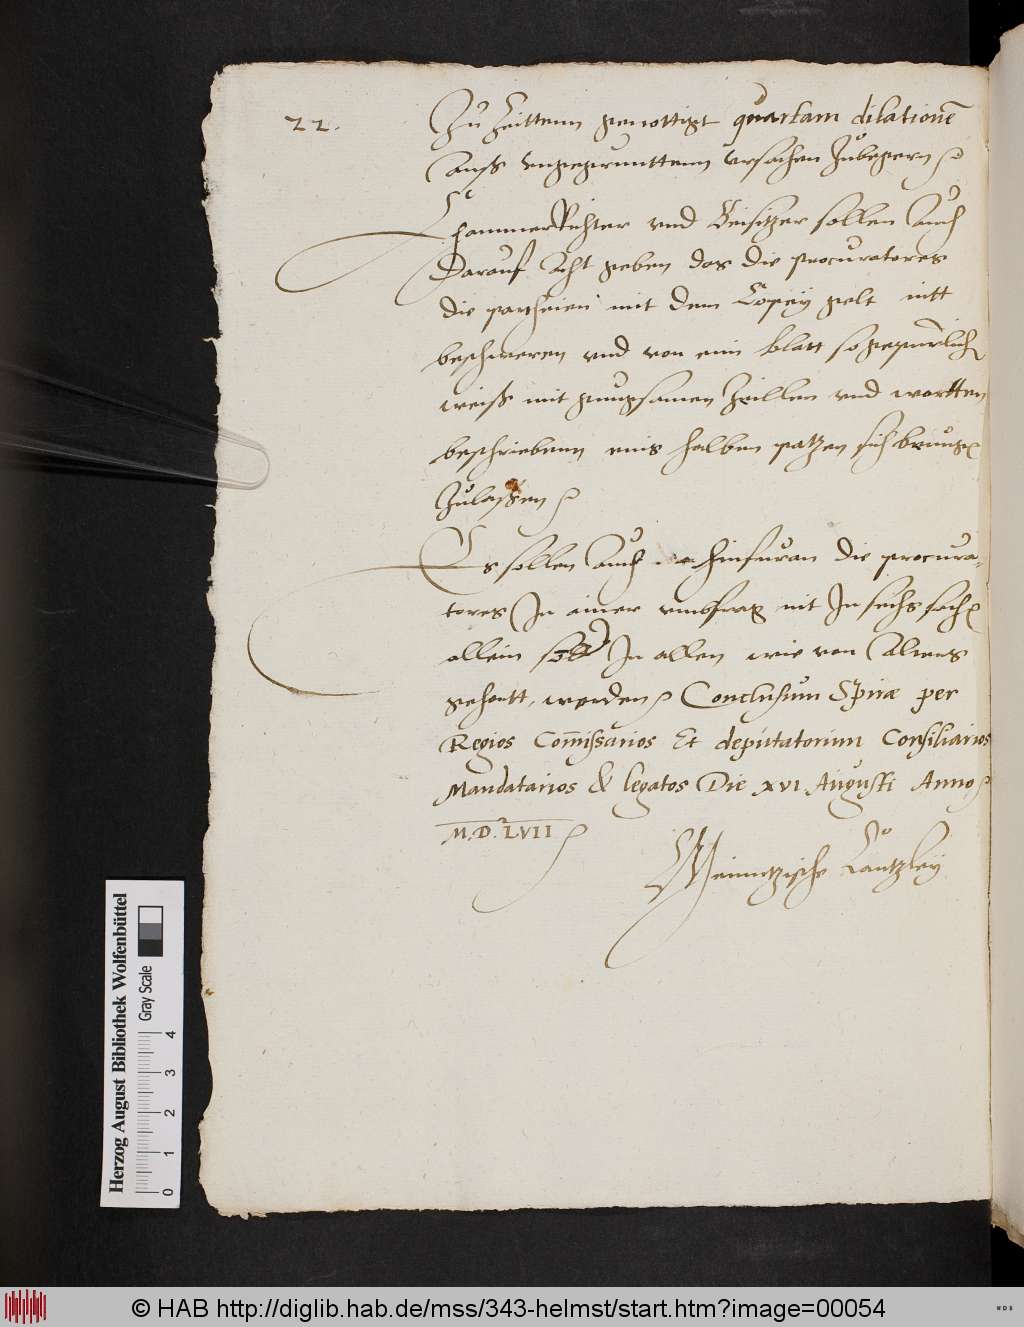 22.
Zu Zeittenn genottigt quartam dilationē
auß ungegrunttenn ursachen Zubegern
ChammerRichter und Beisitzer sollen Auch
Darauf Acht geben das die procuratores
die partheien mit dem Copey gelt nitt
beschweren und von eim blatt so gepurlich
weiß mit gnugsamen Zeillen und wortten
beschriebenn eins halben patzen sich benugē
Zulaßen
Es sollen Auch hinfuran die procura-
tores In einer umbfrag nit In sechs sachē
allein sōd In allen wie von Alters
gehortt, werden Conclusum Spiræ per
Regios Com̄issarios Et deputatorum Consiliarios
Mandatarios & legatos Die XVI Augusti Anno
M.D.LVII
Meinntzische Cantzley
Herzog August Bibliothek Wolfenbüttel
Gray Scale
0 1 2 3 4
© HAB http://diglib.hab.de/mss/343-helmst/start.htm?image=00054
WDB